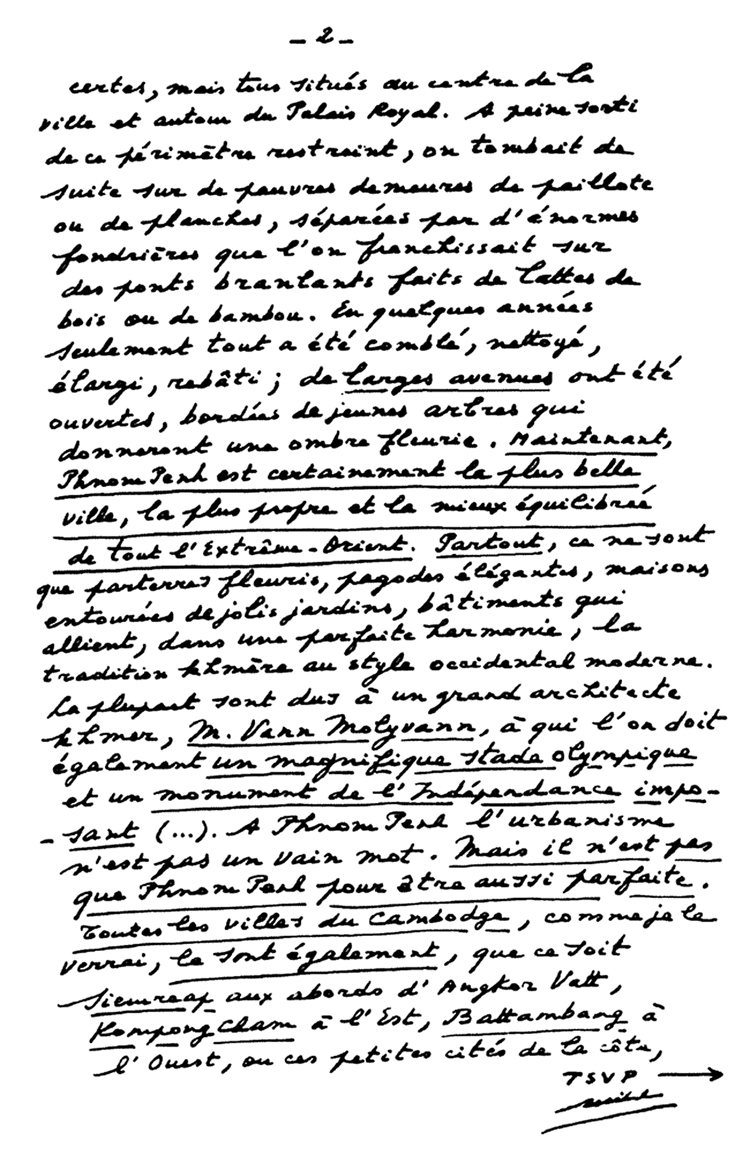 - 2 -
certes, mais tous situés au centre de la
ville et autour du Palais Royal. A peine sorti
de ce périmètre restreint, on tombait de
suite sur de pauvres demeures de paillote
ou de planches, séparées par d'énormes
fondrières que l'on franchissait sur
des ponts branlants faits de lattes de
bois ou de bambou. En quelques années
seulement tout a été comblé, nettoyé,
élargi, rebâti ; de larges avenues ont été
ouvertes, bordées de jeunes arbres qui
donneront une ombre fleurie. Maintenant,
Phnom Penh est certainement la plus belle
ville, la plus propre et la mieux équilibrée
de tout l'Extrême-Orient. Partout, ce ne sont
que parterres fleuris, pagodes élégantes, maisons
entourées de jolis jardins, bâtiments qui
allient, dans une parfaite harmonie, la
tradition khmère au style occidental moderne.
La plupart sont dus à un grand architecte
khmer, M. Vann Molyvann, à qui l'on doit
également un magnifique stade olympique
et un monument de l'Indépendance impo-
- sant (...). A Phnom Penh l'urbanisme
n'est pas un vain mot. Mais il n'est pas
que Phnom Penh pour être aussi parfaite.
Toutes les villes du Cambodge, comme je le
verrai, le sont également, que ce soit
Siemreap aux abords d'Angkor Vatt,
Kompong Cham à l'Est, Battambang à
l'Ouest, ou ces petites cités de la côte,
TSVP →